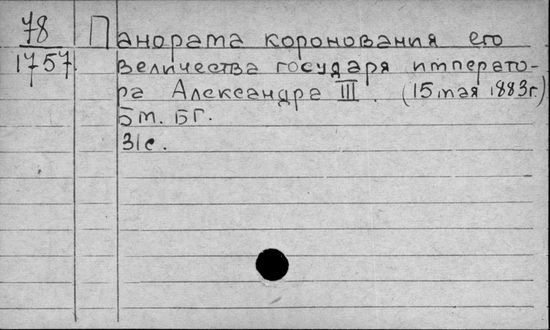 78
1757
Панорама коронования его
величества государя императо-
ра Александра III. (15 мая 1883г.)
Б м. Б г.
31 с.